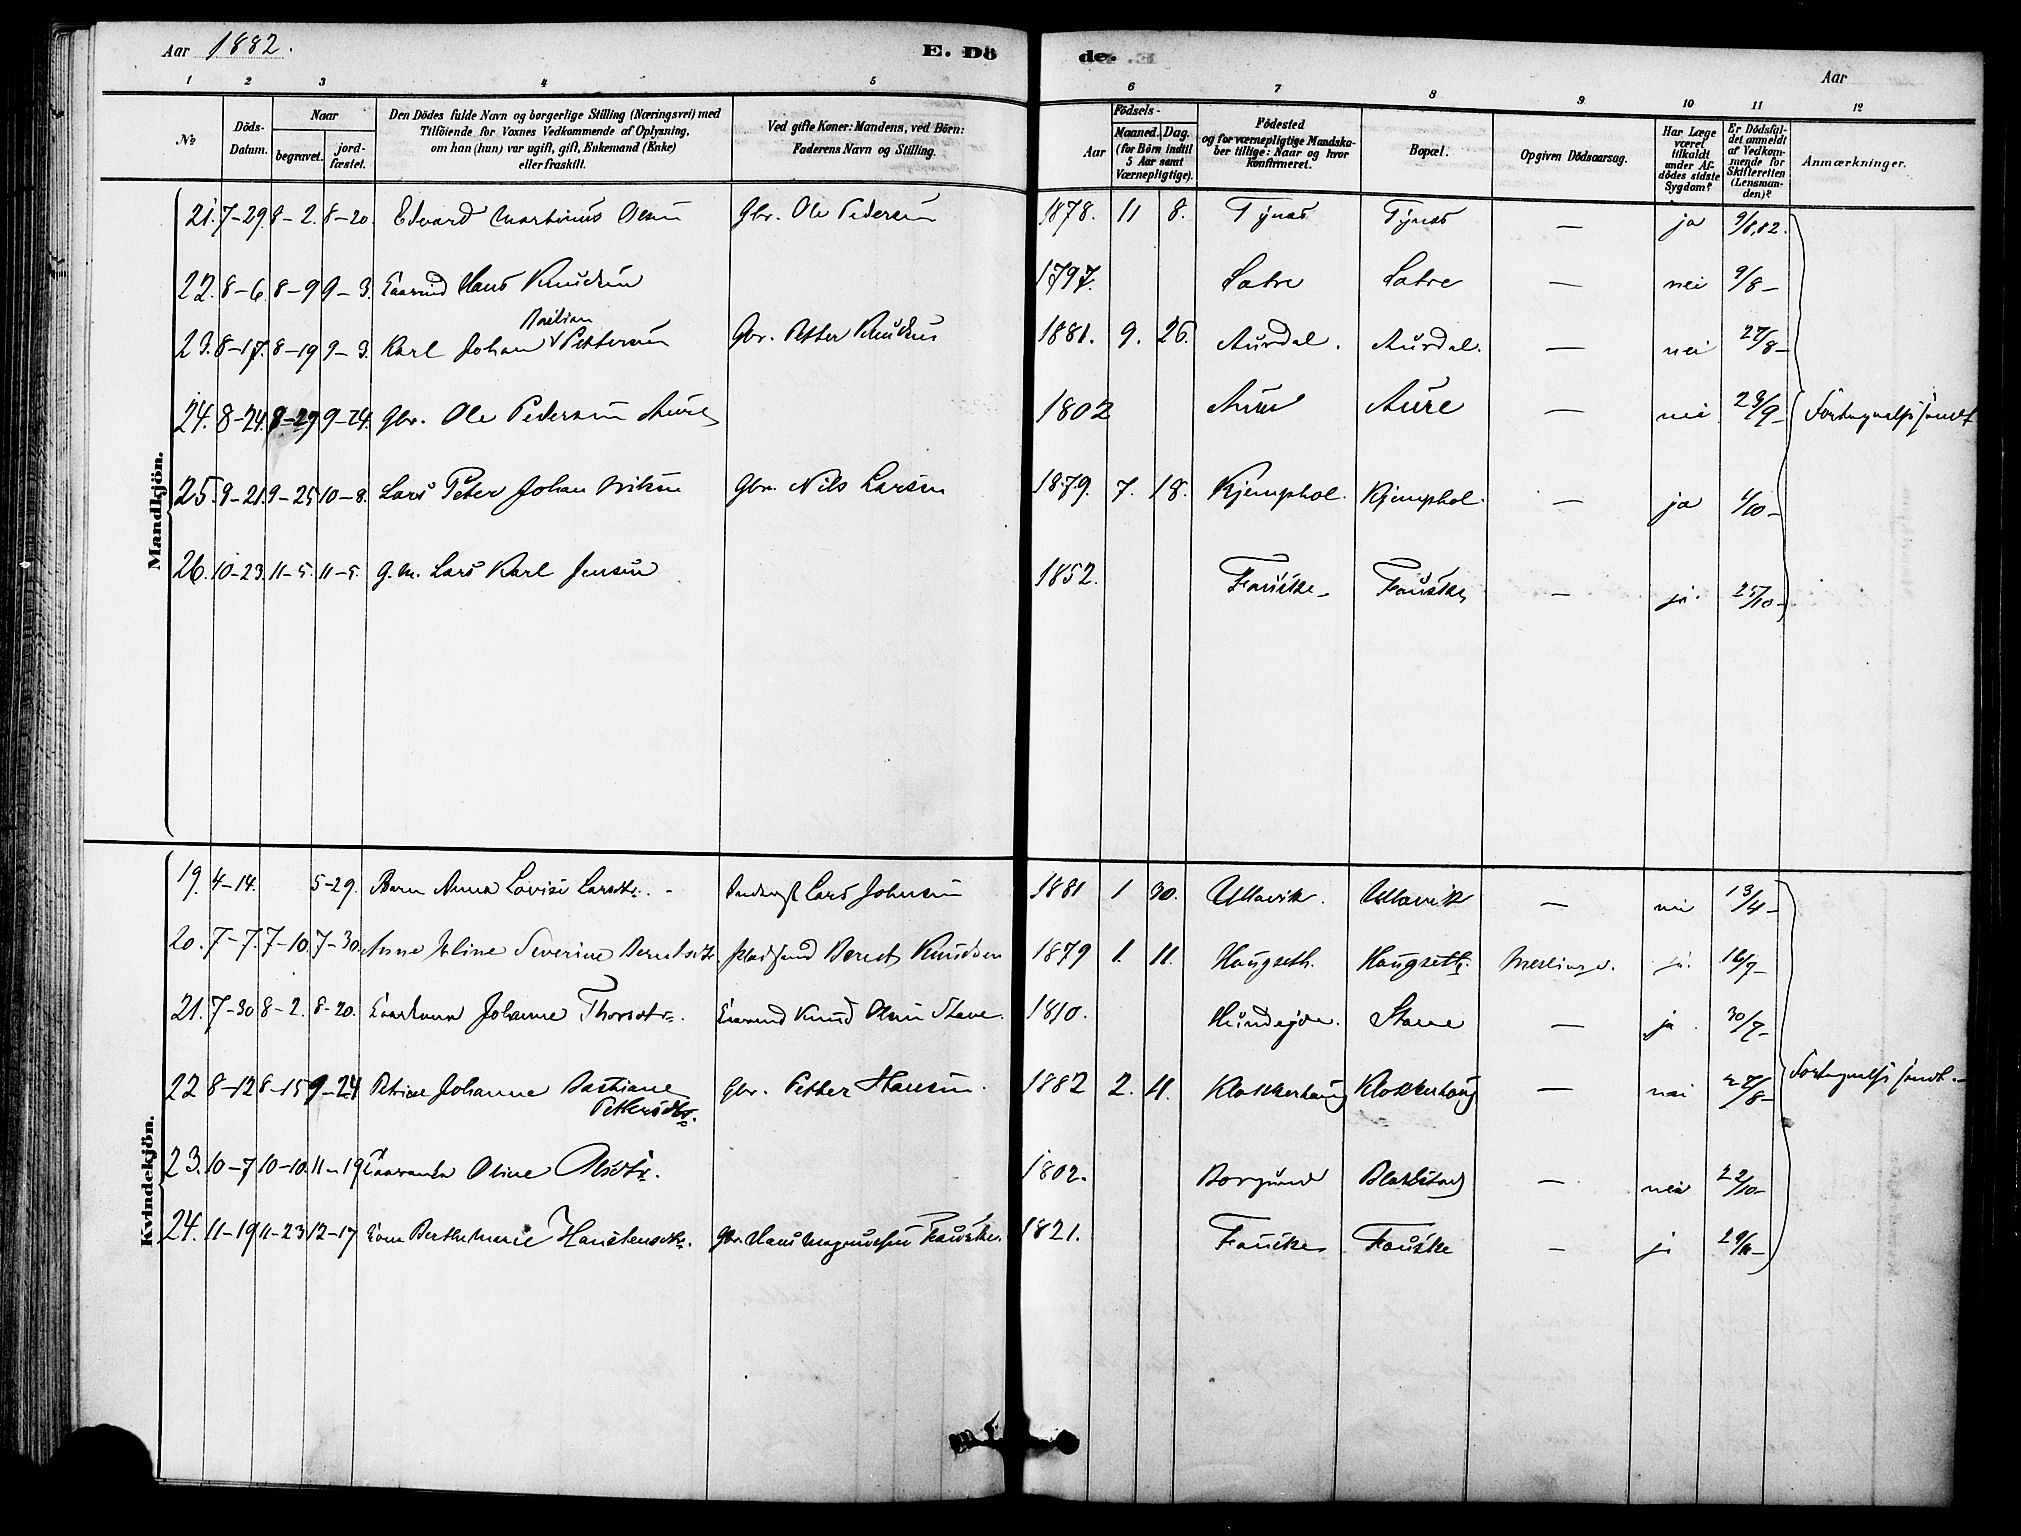 Aar 1882.
E. Dö
de.
Aar
1 2 3 4 5 6 7 8 9 10 11 12
No
Döds-
Datum.
Naar
begravet.
jord-
fæstet.
Den Dödes fulde Navn og borgerlige Stilling (Næringsvei) med
Tilföiende for Voxnes Vedkommende af Oplysning,
om han (hun) var ugift, gift, Enkemand (Enke)
eller fraskilt.
Ved gifte Koner: Mandens, ved Börn:
Faderens Navn og Stilling.
Födsels-
Aar
Maaned. Dag.
(for Börn indtil
5 Aar samt
Værnepligtige).
Födested
og for værnepligtige Mandska-
ber tillige: Naar og hvor
konfirmeret.
Bopæl.
Opgiven Dödsaarsag.
Har Læge
været
tilkaldt
under Af-
dödes sidste
Sygdom?
Er Dödsfal-
det anmeldt
af Vedkom-
mende for
Skifteretten
(Lensman-
den)?
Anmærkninger.
Mandkjön.
21. 7-29. 8-2. 8-20. Edvard Martinus Olsen Gbr. Ole Pedersen 1878. 11 8. Tynes Tynes — ja 9/8,82.
22. 8-6. 8-9 9-3. Hans Knudsen 1797. Satre Satre — nei 9/8-
23. 8-17. 8-19 9-3. Karl Johan Pettersen Gbr. Petter Knudsen 1881. 9. 26. Aurdal. Aurdal. — nei 27/8-
24. 8-24. 8-29 9-24. Gbr. Ole Pedersen Aure 1802 Aure Aure — nei 23/9-
25. 9-21. 9-25 10-8. Lars Peter Johan Nilsen Gbr. Nils Larsen 1879. 7. 18. Kjemphol. Kjemphol. — ja 1/10-
26. 10-23. 11-5. 11-5. g.m. Lars Karl Jensen 1852. Fauske Fauske — ja 25/10-
Kvindekjön.
19. 4-14. 5-29. Barn Anna Lovise Larsdtr. Lars Johnsen 1881 1 30. Ullavik. Ullavik — nei 13/4-
20. 7-7. 7-10. 7-30. Anne Oline Severine Berntsdtr. Bernt Knudsen 1879 1. 11. Haugseth. Haugseth. ja. 16/7-
21. 7-30 8-2. 8-20. Johanne Thorsdtr. Knud Olsen Stave 1810. Stave — ja 30/7-
22 8-12 8-15 9-24 Petrine Johanne Bastiane
Pettersdtr.
Gbr. Petter Hansen. 1882 2. 11. Klokkerhaug Klokkerhaug — nei 27/8-
23. 10-7 10-10. 11-19 Oline Olsdtr. 1802. Borgund — nei 22/10-
24. 11-19 11-23 12-17 Kone Berthe Marie Gbr. Hans Magnussen Fauske. 1821. Fauske Fauske — ja